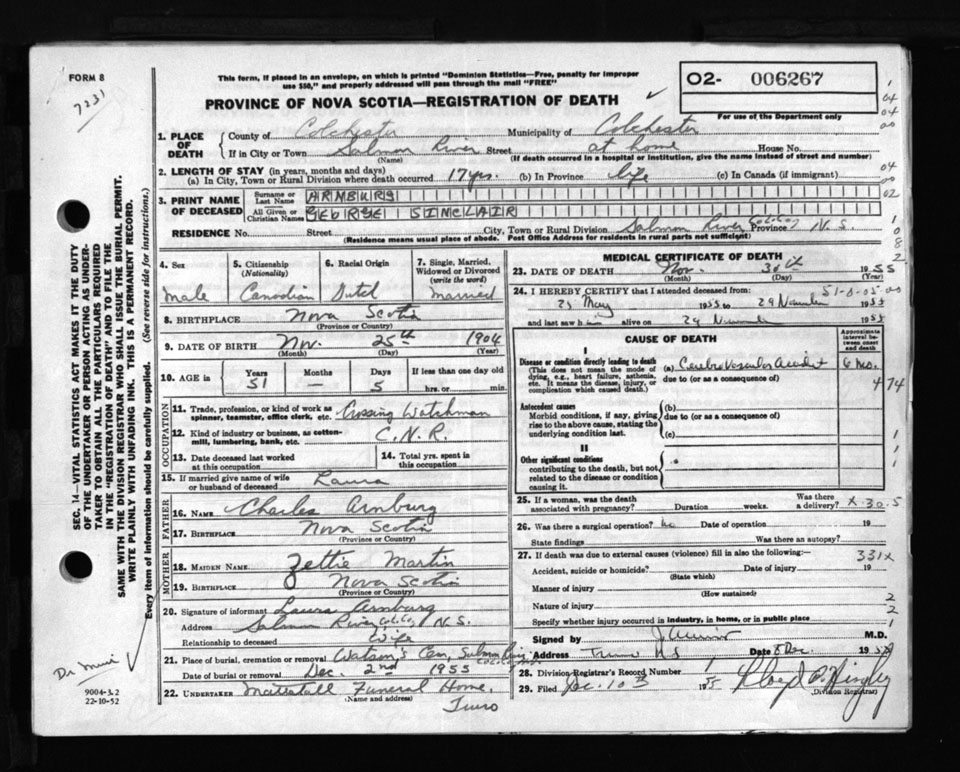 FORM 8
7231
This form, if placed in an envelope, on which is printed "Dominion Statistics—Free, penalty for improper
use $50," and properly addressed will pass through the mail "FREE"
PROVINCE OF NOVA SCOTIA—REGISTRATION OF DEATH
O2- 006267
For use of the Department only
1. PLACE OF DEATH
County of Colchester Municipality of Colchester
If in City or Town Salmon River Street at home House No.
(Name) (If death occurred in a hospital or institution, give the name instead of street and number)
2. LENGTH OF STAY (in years, months and days)
(a) In City, Town or Rural Division where death occurred 17 yrs. (b) In Province life (c) In Canada (if immigrant)
3. PRINT NAME OF DECEASED
Surname or Last Name ARNBURG
All Given or Christian Names GEORGE SINCLAIR
RESIDENCE No. Street City, Town or Rural Division Salmon River Col. Co. Province N.S.
(Residence means usual place of abode. Post Office Address for residents in rural parts not sufficient)
4. Sex
Male
5. Citizenship
(Nationality)
Canadian
6. Racial Origin
Dutch
7. Single, Married, Widowed or Divorced
(write the word)
Married
8. BIRTHPLACE Nova Scotia
(Province or Country)
9. DATE OF BIRTH Nov. 25th 1904
(Month) (Day) (Year)
10. AGE in Years Months Days If less than one day
51 — 5 hrs. or min.
OCCUPATION
11. Trade, profession, or kind of work as spinner, teamster, office clerk, etc. Crossing Watchman
12. Kind of industry or business, as cotton-mill, lumbering, bank, etc. C.N.R.
13. Date deceased last worked at this occupation
14. Total yrs. spent in this occupation
15. If married give name of wife or husband of deceased Laura
FATHER
16. NAME Charles Arnburg
17. BIRTHPLACE Nova Scotia
(Province or Country)
MOTHER
18. MAIDEN NAME Zettie Martin
19. BIRTHPLACE Nova Scotia
(Province or Country)
20. Signature of informant Laura Arnburg
Address Salmon River, Col. Co. N.S.
Relationship to deceased Wife
21. Place of burial, cremation or removal Watson's Cem, Salmon River, Col. Co. N.S.
Date of burial or removal Dec. 2nd 1955
22. UNDERTAKER Mattatall Funeral Home,
(Name and Address) Truro
MEDICAL CERTIFICATE OF DEATH
23. DATE OF DEATH Nov. 30th 1955
(Month) (Day) (Year)
24. I HEREBY CERTIFY that I attended deceased from: 51-0-05-00
25 May 1955 to 29 November 1955
and last saw him alive on 29 November 1955
CAUSE OF DEATH
Approximate interval between onset and death
I
Disease or condition directly leading to death (a) Cerebrovascular Accident 6 mo.
(This does not mean the mode of dying, e.g., heart failure, asthenia, etc. It means the disease, injury, or complication which caused death.)
due to (or as a consequence of)
474
Antecedent causes (b)
Morbid conditions, if any, giving rise to the above cause, stating the underlying condition last.
due to (or as a consequence of)
(c)
II
Other significant conditions contributing to the death, but not related to the disease or condition causing it.
25. If a woman, was the death associated with pregnancy? Duration weeks. Was there a delivery? X-30.5
26. Was there a surgical operation? no Date of operation 19
State findings Was there an autopsy?
27. If death was due to external causes (violence) fill in also the following:— 331X
Accident, suicide or homicide? Date of injury 19
(State which)
Manner of injury
(How sustained)
Nature of injury
Specify whether injury occurred in industry, in home, or in public place
Signed by J. Muir M.D.
Address Truro N.S. Date 8 Dec. 1955
28. Division Registrar's Record Number
29. Filed Dec. 10th 1955 Lloyd
Division Registrar
SEC. 14—VITAL STATISTICS ACT MAKES IT THE DUTY
OF THE UNDERTAKER OR PERSON ACTING AS UNDER-
TAKER TO OBTAIN ALL THE PARTICULARS REQUIRED
IN THE "REGISTRATION OF DEATH" AND TO FILE THE
SAME WITH THE DIVISION REGISTRAR WHO SHALL ISSUE THE BURIAL PERMIT.
WRITE PLAINLY WITH UNFADING INK. THIS IS A PERMANENT RECORD.
Every item of information should be carefully supplied. (See reverse side for instructions.)
Dr Muir
9004-3.2
22-10-52